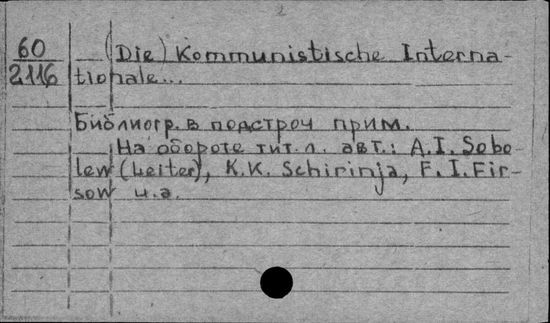 2
60 (Die) Kommunistische Interna-
2116 tionale...
Библиогр. в подстроч прим.
На обороте тит. л. авт.: A.I. Sobo-
lew (Leiter), K.K. Schirinja, F.I. Fir-
sow u.a.